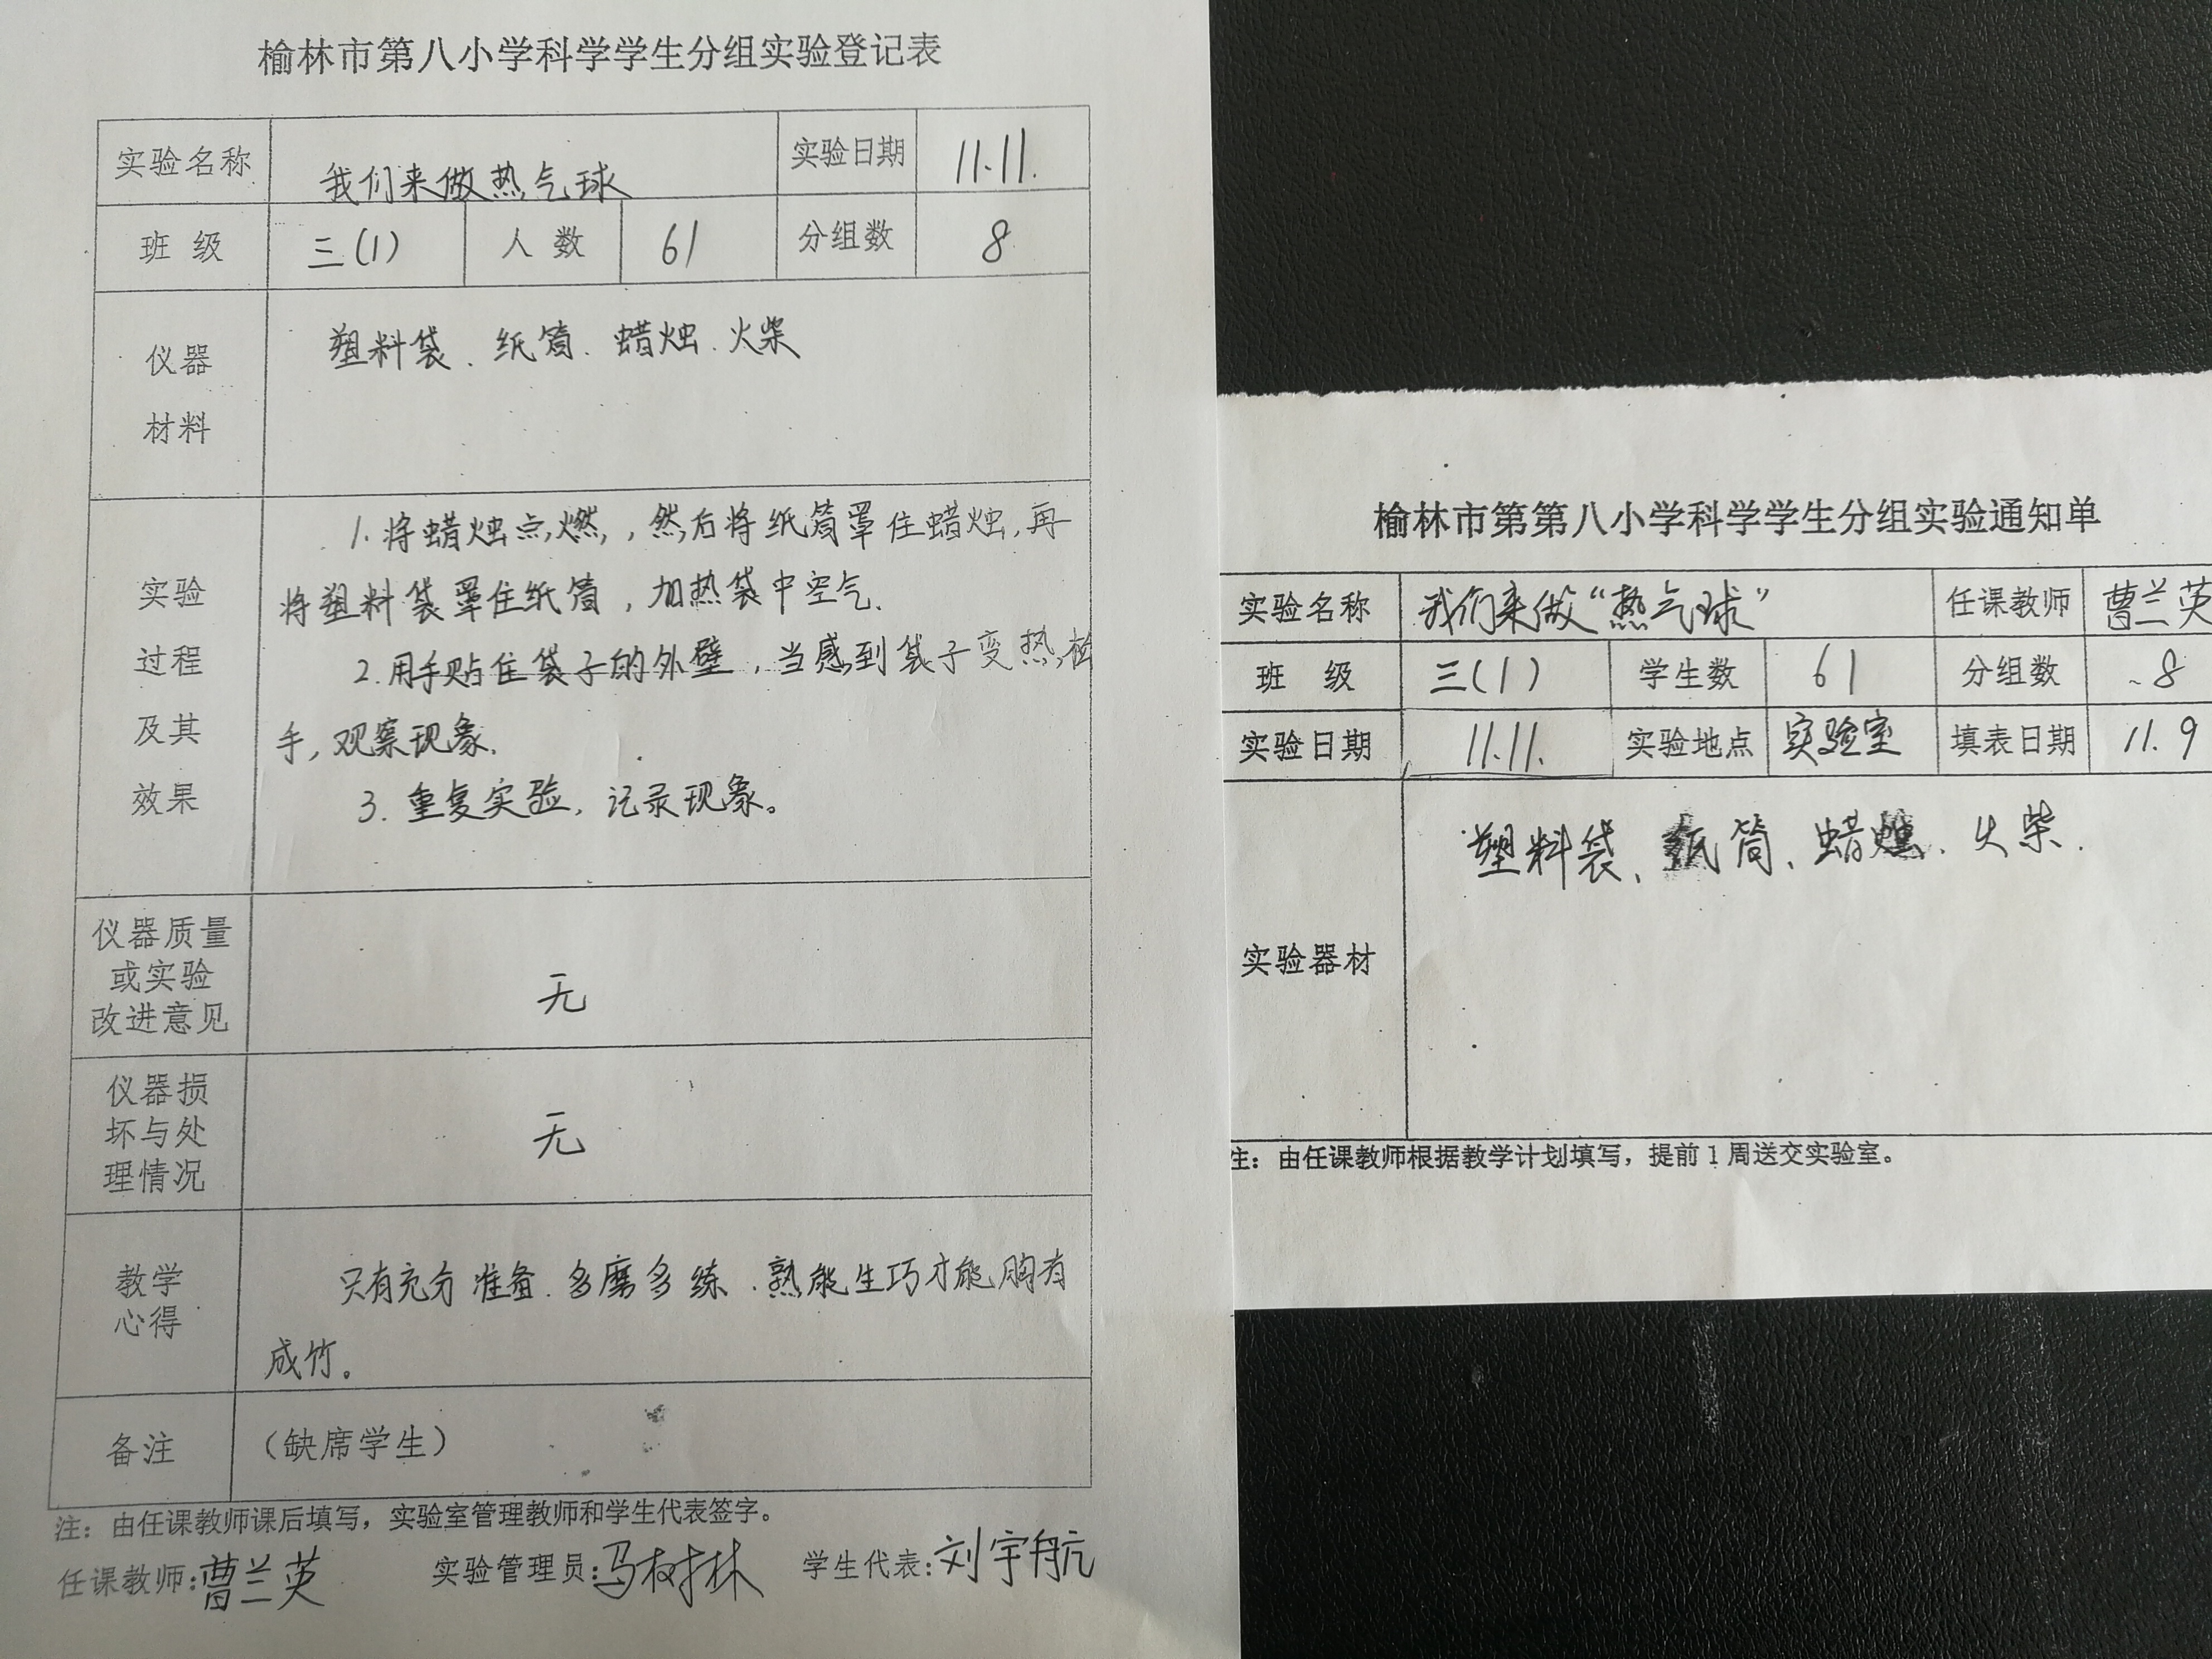 榆林市第八小学科学学生分组实验登记表
实验名称 我们来做热气球 实验日期 11.11.
班 级 三(1) 人 数 61 分组数 8
仪器
材料
塑料袋、纸筒、蜡烛、火柴
实验
过程
及其
效果
1.将蜡烛点燃,然后将纸筒罩住蜡烛,再
将塑料袋罩住纸筒,加热袋中空气.
2.用手贴住袋子的外壁,当感到袋子变热,松
手,观察现象.
3.重复实验,记录现象。
仪器质量
或实验
改进意见
无
仪器损
坏与处
理情况
无
教学
心得
只有充分准备.多磨多练.熟能生巧才能胸有
成竹。
备注 (缺席学生)
注:由任课教师课后填写,实验室管理教师和学生代表签字。
任课教师:曹兰英 实验管理员:马树林 学生代表:刘宇航
榆林市第第八小学科学学生分组实验通知单
实验名称 我们来做“热气球” 任课教师 曹兰英
班 级 三(1) 学生数 61 分组数 8
实验日期 11.11. 实验地点 实验室 填表日期 11.9
实验器材 塑料袋、纸筒、蜡烛、火柴.
注:由任课教师根据教学计划填写,提前1周送交实验室。